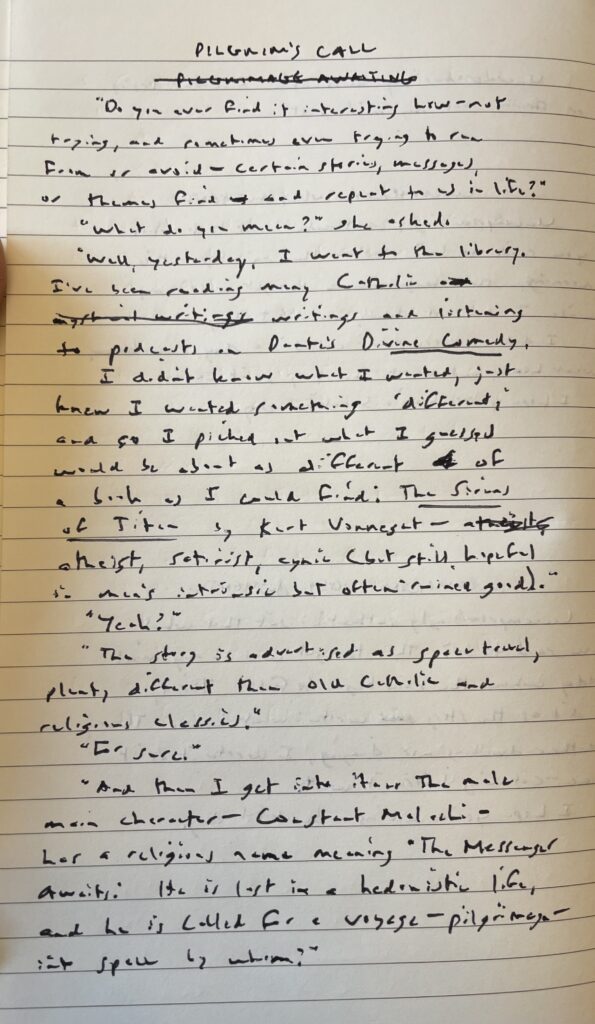 PILGRIM'S CALL
PILGRIMAGE AWAITING
"Do you ever find it interesting how—not
trying, and sometimes even trying to run
from or avoid—certain stories, messages,
or themes find and repeat to us in life?"
"What do you mean?" she asked.
"Well, yesterday, I went to the library.
I've been reading many Catholic
mystical writings writings and listening
to podcasts on Dante's Divine Comedy.
I didn't know what I wanted, just
knew I wanted something 'different,'
and so I picked out what I guessed
would be about as different of
a book as I could find: The Sirens
of Titan by Kurt Vonnegut — atheist,
atheist, satirist, cynic (but still hopeful
in man's intrinsic but often ruined good)."
"Yeah?"
"The story is advertised as space travel,
planets, different than old Catholic and
religious classics."
"For sure."
"And then I get into it. The male
main character — Constant Malachi —
has a religious name meaning "The Messenger
Awaits." He is lost in a hedonistic life,
and he is called for a voyage — pilgrimage —
into space by whom?"